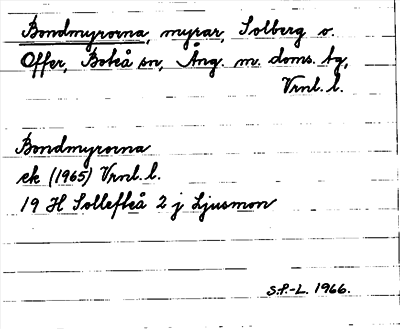 Bondmyrorna, myrar, Solberg o.
Offer, Boteå sn, Ång. m. doms. tg,
Vrnl. l.
Bondmyrorna
ek (1965) Vrnl. l.
19 H Sollefteå 2 j Ljusmon
S.P.-L. 1966.